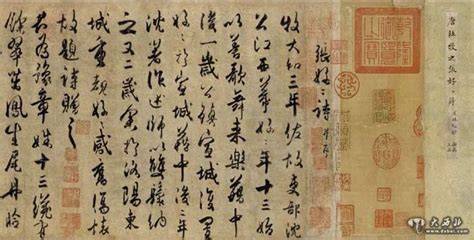 唐杜牧之張好好詩
張好好詩 并序
牧大和三年佐故吏部沈
公江西幕好好年十三始
以善歌舞來樂籍中
後一歲公鎮宣城復置
好好於宣城籍中後
沈著作述師以雙鬟納
之又二歲余於洛陽東
城重覩好好感舊傷懷
故題詩贈之
君為豫章姝十三纔有
餘翠茁鳳生尾丹臉
大西北